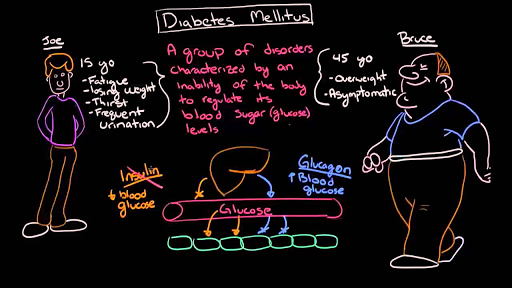 Diabetes Mellitus
Joe
15 yo
-Fatigue
-losing weight
-Thirst
-Frequent
urination
A group of disorders
characterized by an
inability of the body
to regulate its
blood sugar (glucose)
levels
Bruce
45 yo
-Overweight
-Asymptomatic
Insulin
↓ blood
glucose
Glucagon
↑ Blood
glucose
Glucose